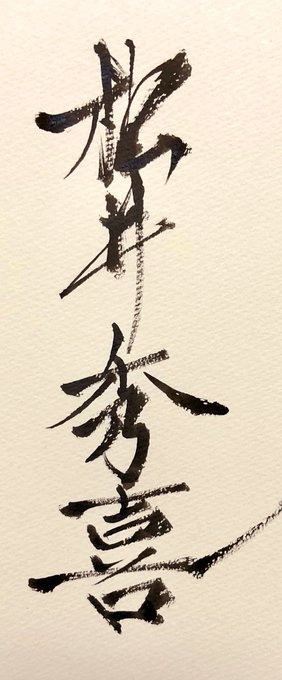 松井秀喜